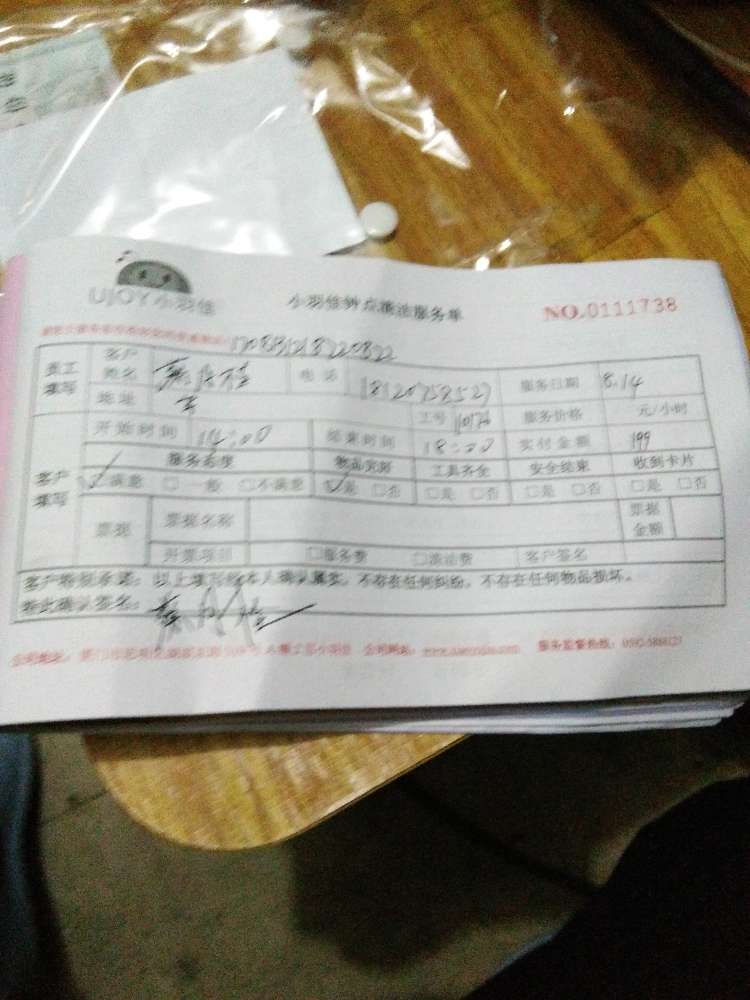 UJOY小羽佳
小羽佳钟点清洁服务单
NO.0111738
170813218720822
员工填写
客户姓名
电话 18120758527
服务日期 8.14
地址
工号
服务价格 元/小时
开始时间 14:00
结束时间 18:00
实付金额 199
客户填写
服务态度 物品完好 工具齐全 安全结束 收到卡片
☑满意 □一般 □不满意 ☑是 □否 □是 □否 □是 □否 □是 □否
票据
票据名称
票据金额
开票项目 □服务费 □清洁费 客户签名
客户特别承诺：以上填写经本人确认属实，不存在任何纠纷，不存在任何物品损坏。
特此确认签名：
公司地址： 公司网站： 服务监督热线：